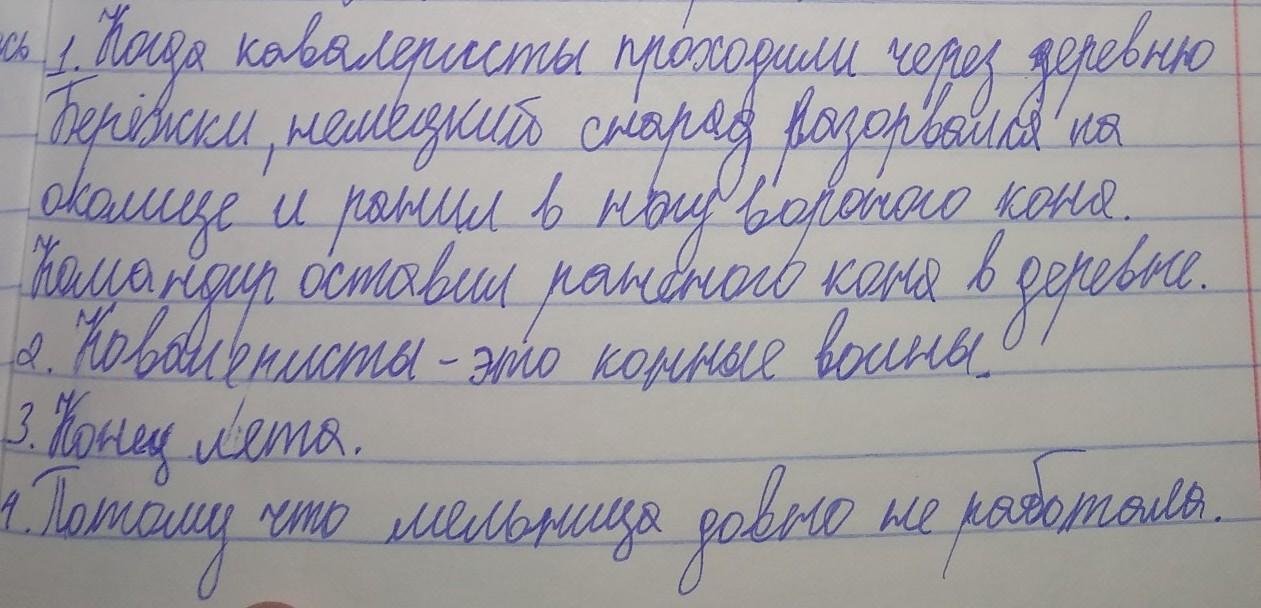 ись 1. Когда кавалеристы проходили через деревню
Берёжки, немецкий снаряд разорвался на
околице и ранил в ногу вороного коня.
Командир оставил раненого коня в деревне.
2. Ковалеристы - это конные воины.
3. Конец лета.
4. Потому что мельница давно не работала.